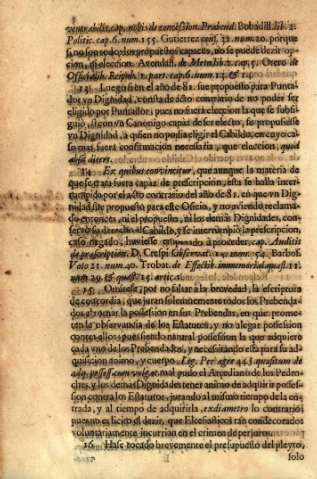 venerabilis, cap. nobis de concession. Prabend. Bobadill. lib. 2.
Politic. cap. 6. num. 155. Gutierrez cons. 11. num. 20. porque
si no son todos los propuestos capaces, no se puede dezir op-
cion, ni eleccion. Avendañ. de Meta lib. 2. cap. 5. Otero de
Officialib. Reipub. 2. part. cap. 6. num. 14. &
13. Luego si en el año de 82. fue propuesto para Punta-
dor vn Dignidad, consta de acto contrario de no poder ser
elegido por Puntador: pues no fuera eleccion la que se subsi-
guiò, si con vn Canonigo capaz de ser electo, se propusiesse
vn Dignidad, à quien no podia elegir el Cabildo, en cuyo ca-
so mas fuera confirmacion necessaria, que eleccion, quid
14. Ex quibus convincitur, que aunque la materia de
que se trata fuera capaz de prescripcion, esta se halla inter-
rumpida por el acto contrario del año de 82. en que vn Dig-
nidad fue propuesto para este Oficio, y no aviendo reclama-
do entonces, ni el propuesto, ni los demàs Dignidades, con-
servò su derecho el Cabildo, y se interrumpiò la prescripcion,
caso negado, huviesse empezado à proceder, cap. Auditis
de præscription. D. Crespi observat. num. 54. Barbos.
Voto 21. num. 40. Trobat. de Effectib. immemor.
num. 29. & quæst. 15. artic.
15. Omitese, por no faltar à la brevedad, la escriptura
de concordia, que juran solemnemente todos los Prebenda-
dos al tomar la possession de sus Prebendas, en que prome-
ten la observancia de los Estatutos, y no alegar possession
contra ellos: pues siendo natural possession la que adquiere
cada vno de los Prebendados, y necessitando esta para su ad-
quisicion animo, y cuerpo. Leg. Per agro 44. §. quæsitum de
adq. possess. cum vulgat. mal pudo el Arcediano de los Pedro-
ches, y los demàs Dignidades tener animo de adquirir posses-
sion contra los Estatutos, jurando al mismo tiempo de la en-
trada, y al tiempo de adquirirla, ex diametro lo contrario:
pues no es licito el dezir, que Eclesiasticos tan condecorados
voluntariamente incurrian en el crimen de perjuros.
16. Hase tocado brevemente el presupuesto del pleyto,
solo